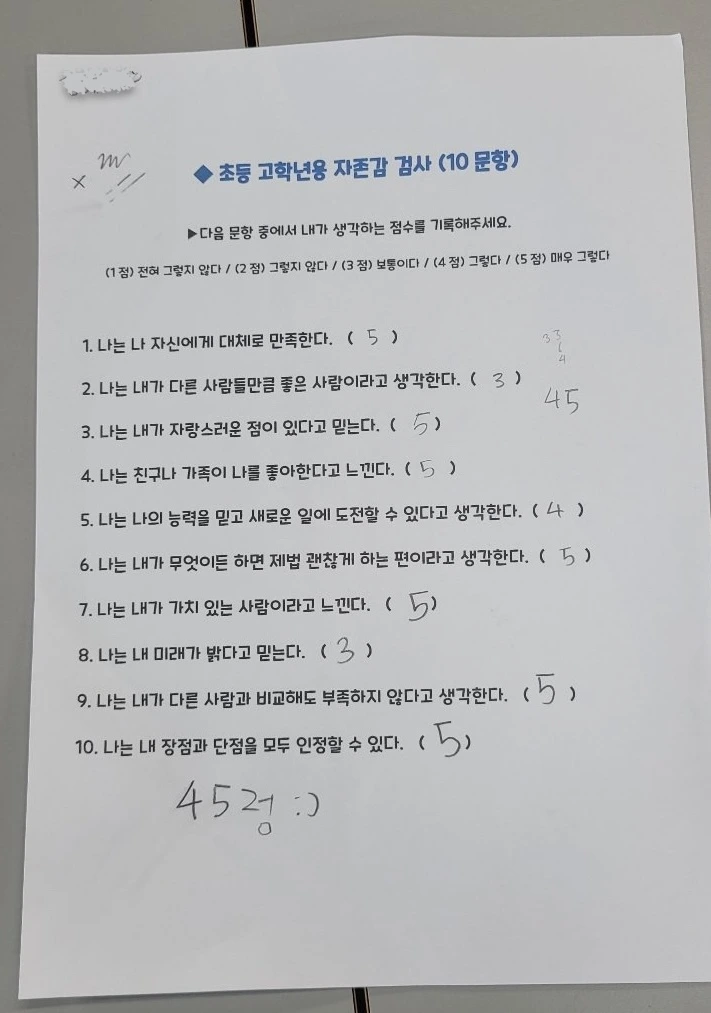 ◆ 초등 고학년용 자존감 검사 (10 문항)
▶다음 문항 중에서 내가 생각하는 점수를 기록해주세요.
(1 점) 전혀 그렇지 않다 / (2 점) 그렇지 않다 / (3 점) 보통이다 / (4 점) 그렇다 / (5 점) 매우 그렇다
1. 나는 나 자신에게 대체로 만족한다. ( 5 )
3 3
4
2. 나는 내가 다른 사람들만큼 좋은 사람이라고 생각한다. ( 3 )
45
3. 나는 내가 자랑스러운 점이 있다고 믿는다. ( 5 )
4. 나는 친구나 가족이 나를 좋아한다고 느낀다. ( 5 )
5. 나는 나의 능력을 믿고 새로운 일에 도전할 수 있다고 생각한다. ( 4 )
6. 나는 내가 무엇이든 하면 제법 괜찮게 하는 편이라고 생각한다. ( 5 )
7. 나는 내가 가치 있는 사람이라고 느낀다. ( 5 )
8. 나는 내 미래가 밝다고 믿는다. ( 3 )
9. 나는 내가 다른 사람과 비교해도 부족하지 않다고 생각한다. ( 5 )
10. 나는 내 장점과 단점을 모두 인정할 수 있다. ( 5 )
45정 :)